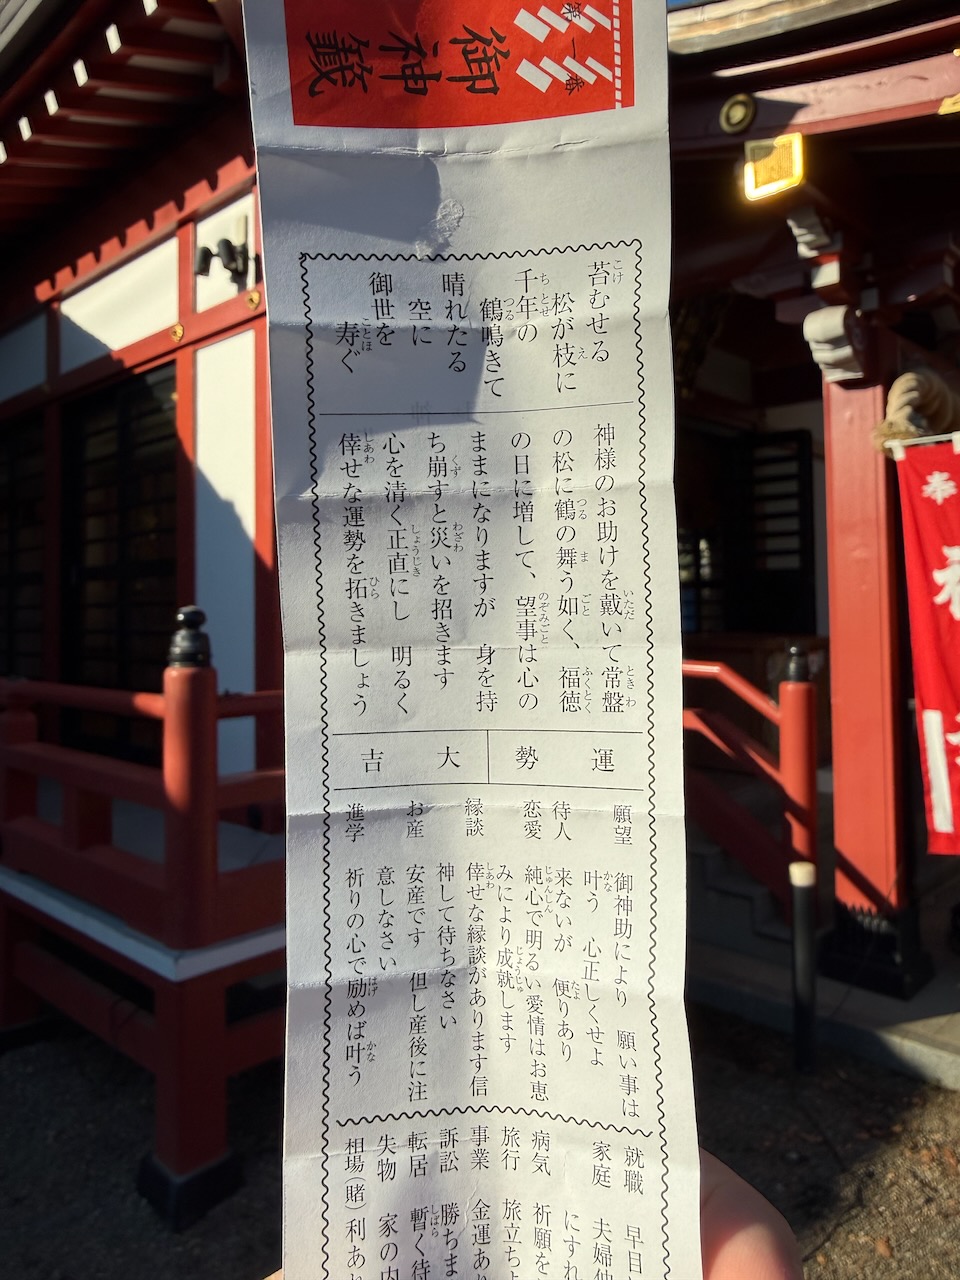 第一番
御神籤
苔むせる
松が枝に
千年の
鶴鳴きて
晴れたる
空に
御世を
寿ぐ
神様のお助けを戴いて常盤
の松に鶴の舞う如く、福徳
の日に増して、望事は心の
ままになりますが 身を持
ち崩すと災いを招きます
心を清く正直にし 明るく
倖せな運勢を拓きましょう
運勢
大吉
願望 御神助により 願い事は
叶う 心正しくせよ
待人 来ないが 便りあり
恋愛 純心で明るい愛情はお恵
みにより成就します
縁談 倖せな縁談があります信
神して待ちなさい
お産 安産です 但し産後に注
意しなさい
進学 祈りの心で励めば叶う
就職 早目
家庭 夫婦仲
にすれ
病気 祈願を
旅行 旅立ち
事業 金運あり
訴訟 勝ちま
転居 暫く待
失物 家の内
相場(賭) 利あり
奉